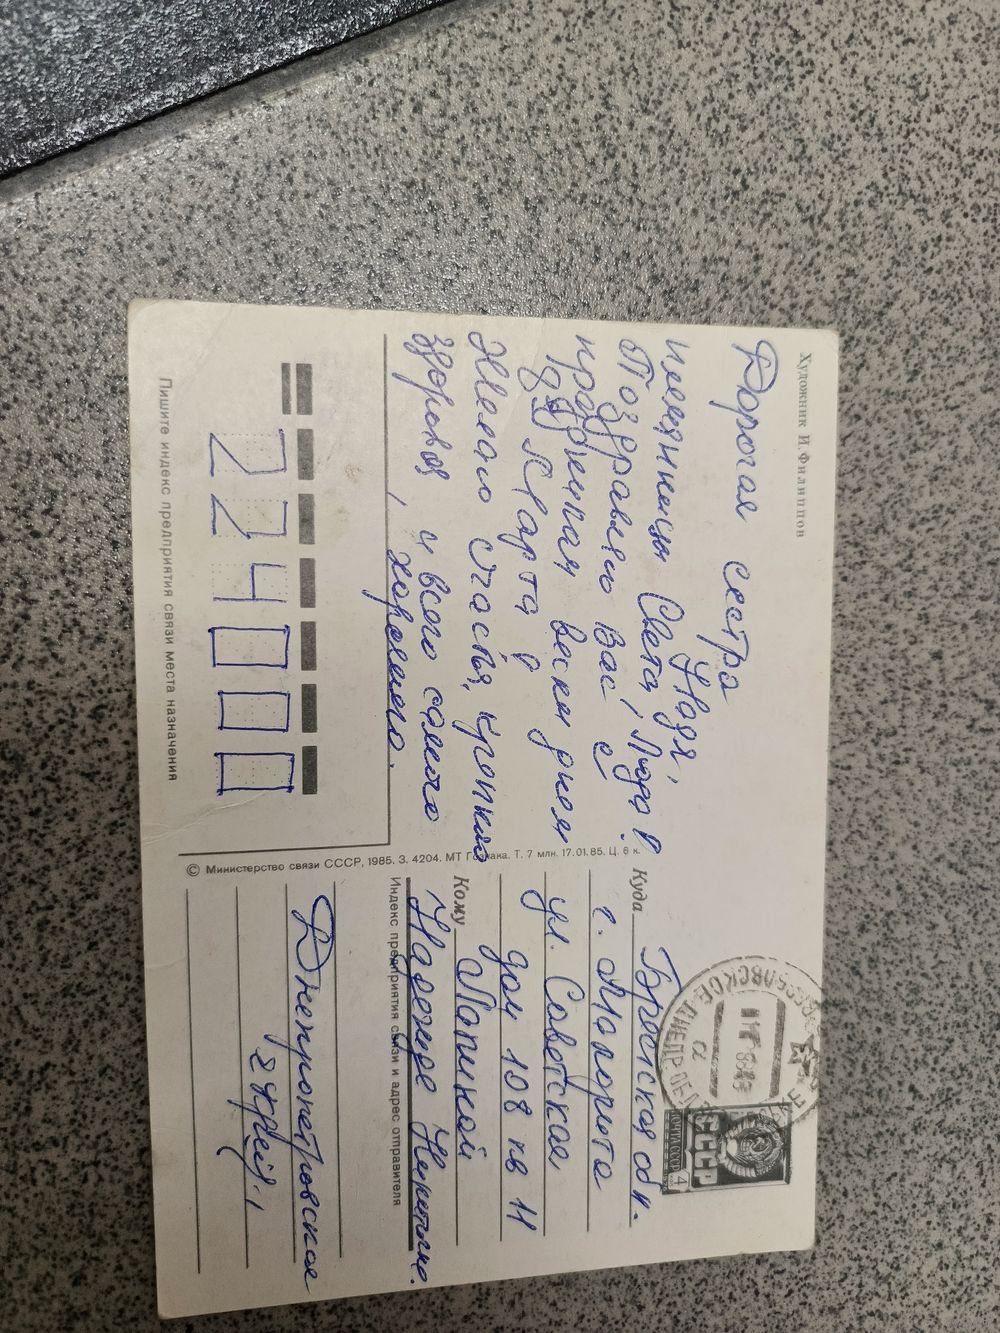 Художник И. Филиппов
Дорогая сестра
Надя,
племянницы Света, Люда!
Поздравляю Вас с
праздничным весен днем
8 Марта!
Желаю счастья, крепкого
здоровья, и всего самого
хорошего.
224000
Пишите индекс предприятия связи места назначения
© Министерство связи СССР, 1985. З. 4204. МТ Гознака. Т. 7 млн. 17.01.85. Ц. 6 к.
ПОЧТА СССР
4
СССР
Куда Брестская обл.
г. Малорита
ул. Советская
дом 108 кв 11
Кому Лапиной
Надежде
Индекс предприятия связи и адрес отправителя
Днепропетровская